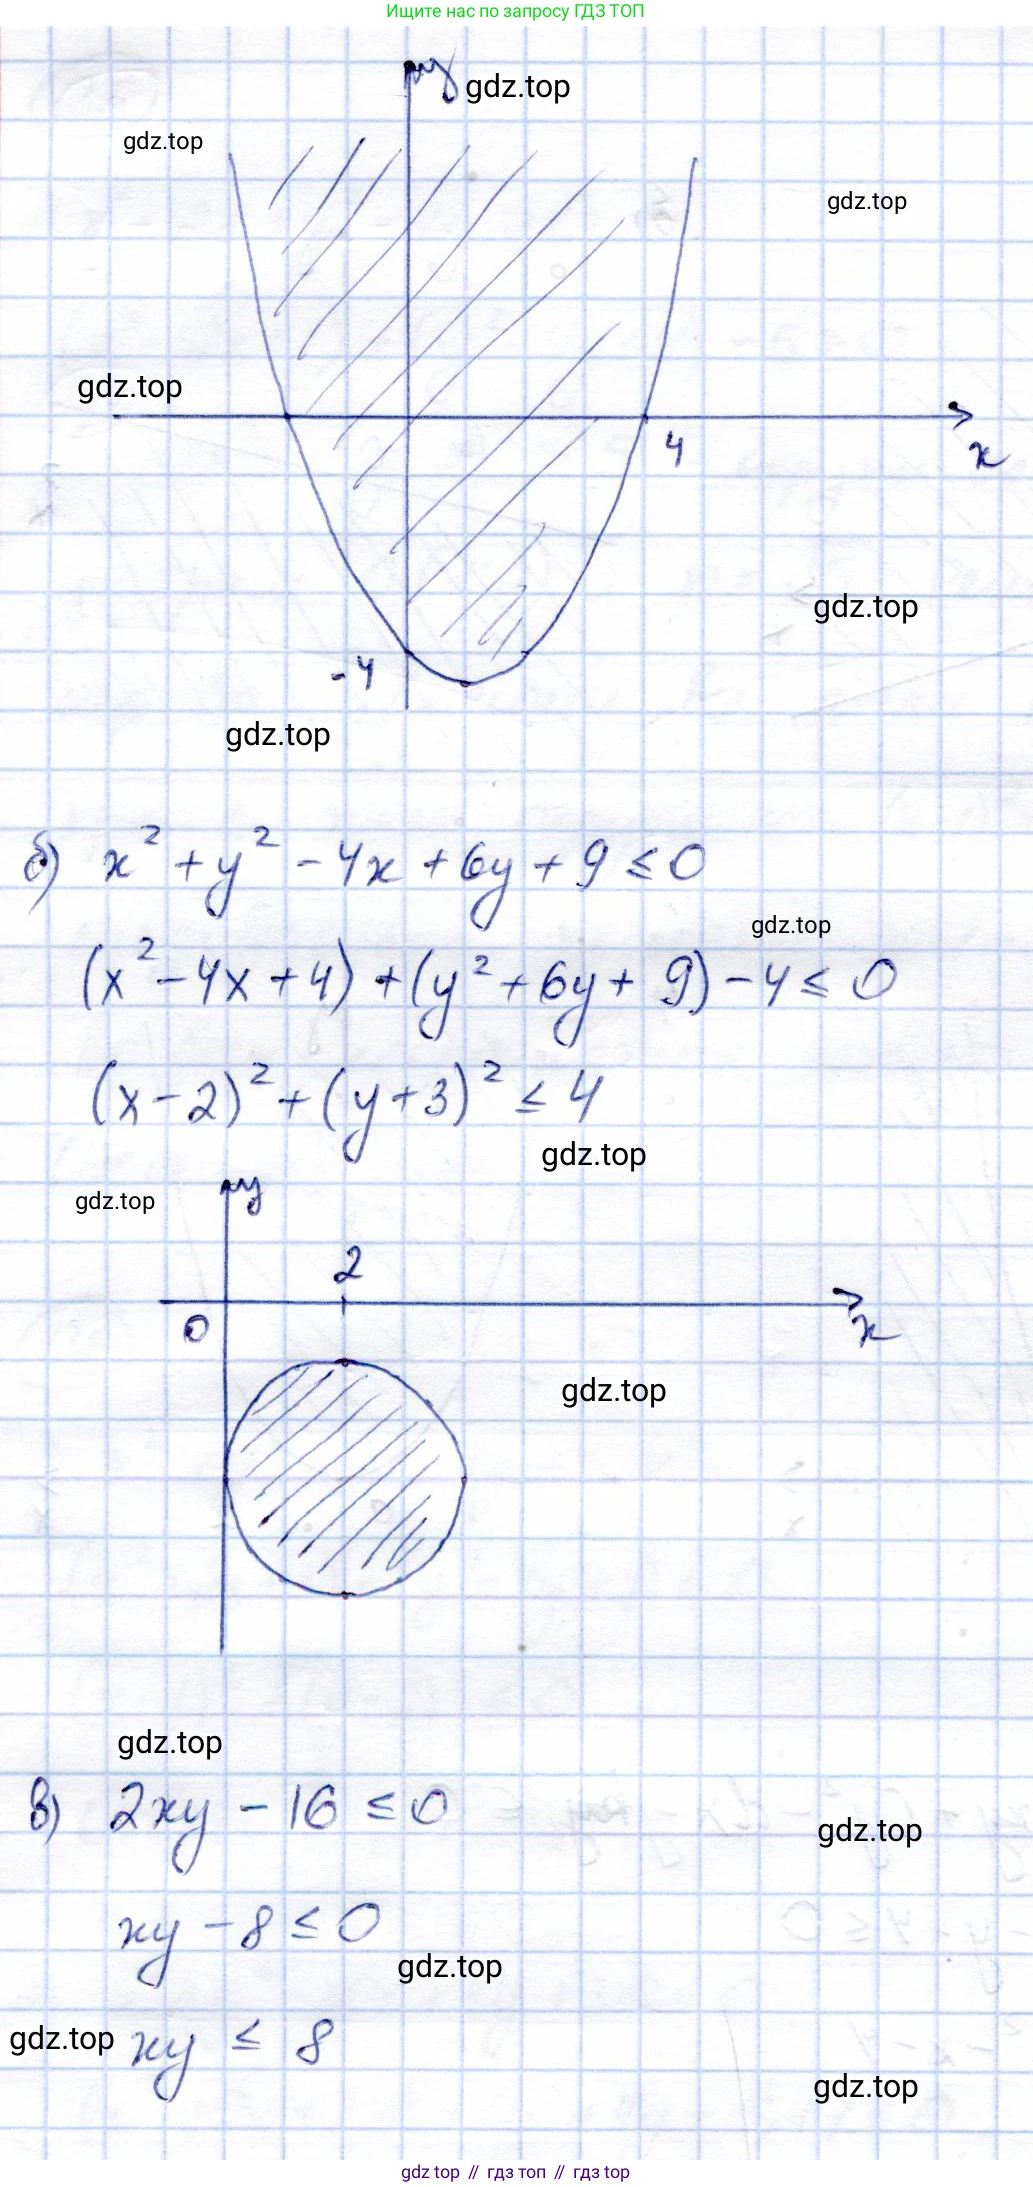 Ищите нас по запросу ГДЗ ТОП
y
gdz.top
gdz.top
gdz.top
gdz.top
4
x
gdz.top
-4
gdz.top
б) x² + y² - 4x + 6y + 9 ≤ 0
gdz.top
(x² - 4x + 4) + (y² + 6y + 9) - 4 ≤ 0
(x - 2)² + (y + 3)² ≤ 4
gdz.top
gdz.top
y
2
0
x
gdz.top
gdz.top
в) 2xy - 16 ≤ 0
gdz.top
xy - 8 ≤ 0
gdz.top
gdz.top
xy ≤ 8
gdz.top
gdz top // гдз топ // гдз top